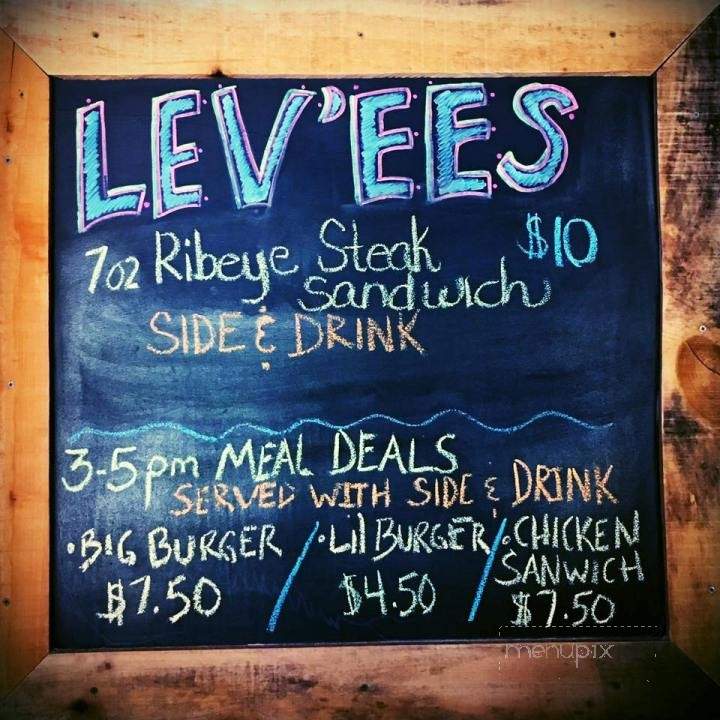 LEV'EES
7oz Ribeye Steak $10
Sandwich
SIDE & DRINK
3-5pm MEAL DEALS
SERVED WITH SIDE & DRINK
•BIG BURGER / •Lil BURGER / •CHICKEN
SANWICH
$7.50 $4.50 $7.50
menupix